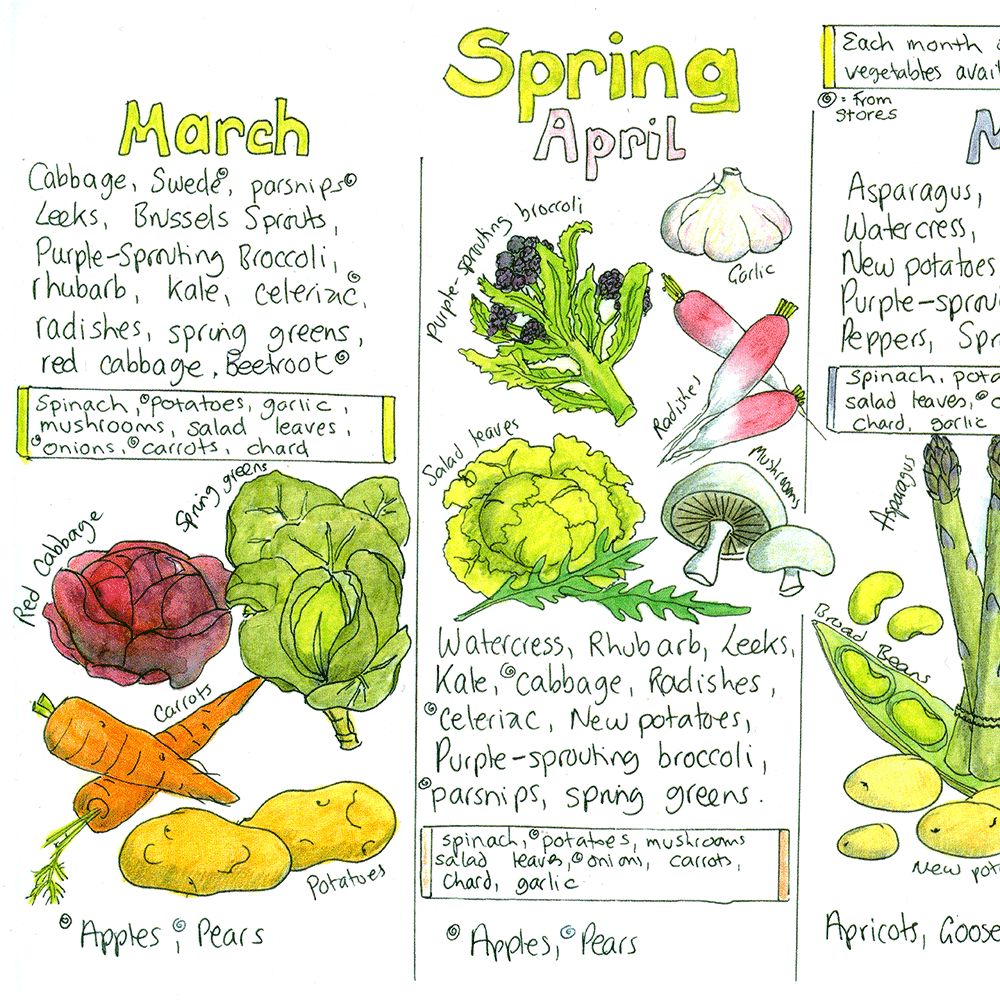 Spring
Each month
vegetables
= From
stores
March
Cabbage, Swede, parsnips
Leeks, Brussels Sprouts,
Purple-Sprouting Broccoli,
rhubarb, kale, celeriac,
radishes, spring greens,
red cabbage, Beetroot
Spinach, potatoes, garlic,
mushrooms, salad leaves,
onions, carrots, chard
Spring greens
Red Cabbage
Carrots
Potatoes
Apples, Pears
April
Purple-sprouting broccoli
Garlic
Radishes
Salad leaves
Mushrooms
Watercress, Rhubarb, Leeks,
Kale, cabbage, Radishes,
celeriac, New potatoes,
Purple-sprouting broccoli,
parsnips, spring greens.
spinach, potatoes, mushrooms
salad leaves, onions, carrots,
Chard, garlic
Apples, Pears
M
Asparagus,
Watercress,
New potatoes
Purple-sprou
Peppers, Spr
Spinach, pota
salad leaves, c
chard, garlic
Asparagus
Broad Beans
New pota
Apricots, Goose